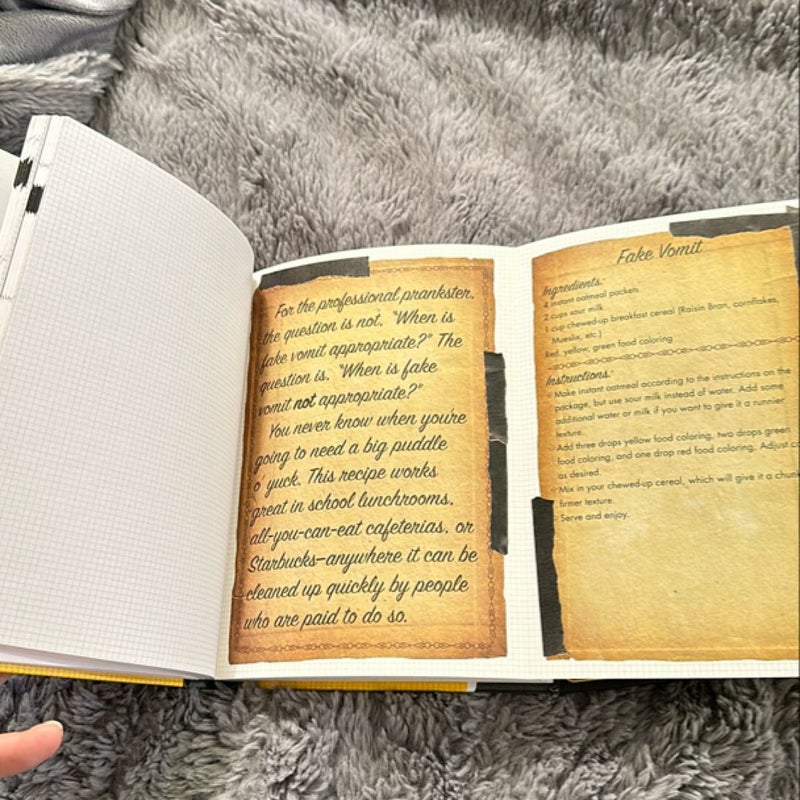 For the professional prankster,
the question is not, "When is
fake vomit appropriate?" The
question is, "When is fake
vomit not appropriate?"
You never know when you're
going to need a big puddle
o' yuck. This recipe works
great in school lunchrooms,
all-you-can-eat cafeterias, or
Starbucks—anywhere it can be
cleaned up quickly by people
who are paid to do so.
Fake Vomit
Ingredients:
4 instant oatmeal packets
2 cups sour milk
1 cup chewed-up breakfast cereal (Raisin Bran, cornflakes,
Mueslix, etc.)
Red, yellow, green food coloring
Instructions:
Make instant oatmeal according to the instructions on the
package, but use sour milk instead of water. Add some
additional water or milk if you want to give it a runnier
texture.
Add three drops yellow food coloring, two drops green
food coloring, and one drop red food coloring. Adjust
as desired.
Mix in your chewed-up cereal, which will give it a
firmer texture.
Serve and enjoy.